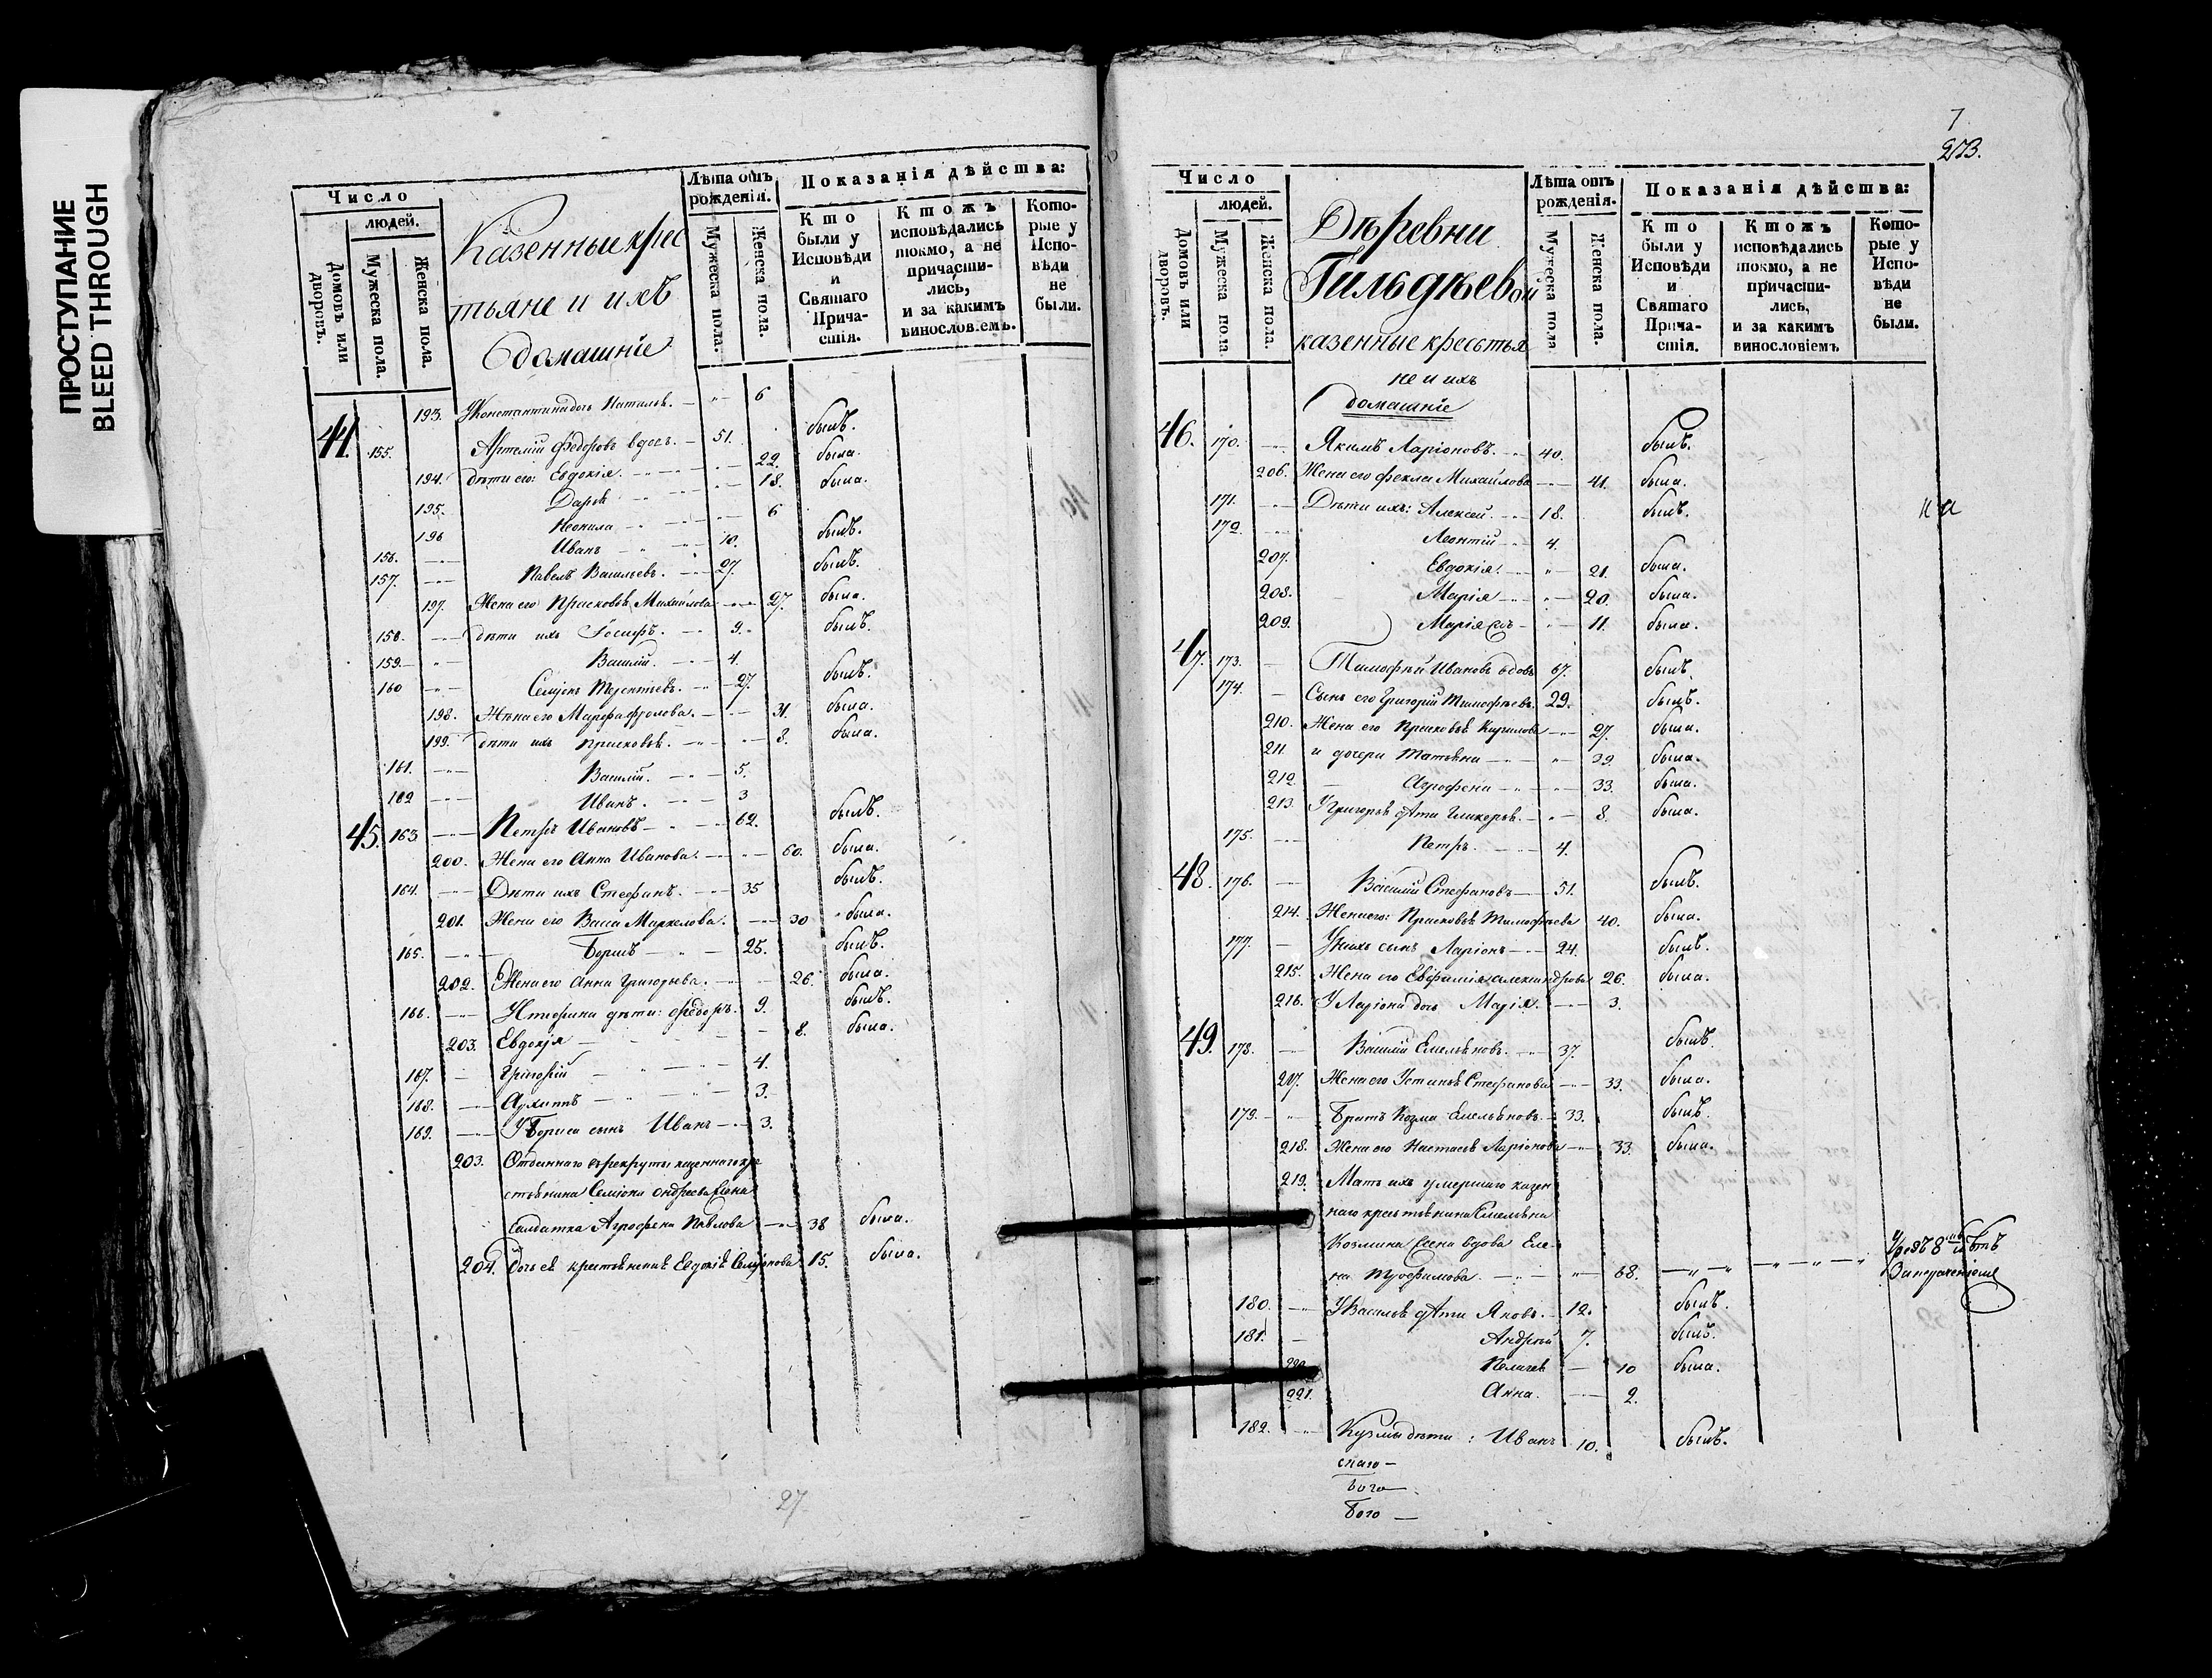 ПРОСТУПАНИЕ
BLEED THROUGH
Число
людей.
Домовъ или дворовъ.
Мужеска пола.
Женска пола.
Казенные крес
тьяне и ихъ
домашніе
Лѣта отъ рожденія.
Мужеска пола.
Женска пола.
Показанія дѣйства:
Кто были у Исповѣди и Святаго Прича-стія.
Ктожъ исповѣдались токмо, а не причасти-лись, и за какимъ винословіемъ.
Кото-рые у Испо-вѣди не были.
193. У Константина дочь Наталья. 6
44. 155. Артемій Федоровъ вдов. 51. былъ.
194. дѣти его: Евдокія. 22. была.
195. Дарья 18. была.
196 Неонила 6
156. Иванъ 10. былъ.
157. Павелъ Васильевъ. 27. былъ.
197. Жена его Прасковья Михайлова 27. была.
158. дѣти ихъ Іосифъ. 9. былъ.
159. Василій. 4.
160 Семіонъ Терентьевъ. 27. былъ.
198. Жена его Марфа Фролова. 31. была.
199. дѣти ихъ Прасковья. 8. была.
161. Василій. 5.
162 Иванъ. 3
45. 163 Петръ Ивановъ 62. былъ.
200. Жена его Анна Иванова. 60. была.
164. Дѣти ихъ Стефанъ. 35 былъ.
201. Жена его Васса Маркелова. 30 была.
165. Борисъ 25. былъ.
202. Жена его Анна Григорьева. 26. была.
166. У Стефана дѣти: Федоръ. 9. былъ.
203. Евдокія 8. была.
167. Григорій 4.
168. Архиппъ 3.
169. У Бориса сынъ Иванъ 3.
203. Отданнаго въ рекруты казеннаго кре
стьянина Семіона Андреева жена
солдатка Агрофена Павлова 38 была.
204. Дочь ея крестьянская Евдокія Семіонова 15. была.
27
7
213.
Число
людей.
Домовъ или дворовъ.
Мужеска пола
Женска пола.
Деревни
казенные крестья
не и ихъ
домашніе
Лѣта отъ рожденія.
Мужеска пола
Женска пола.
Показанія дѣйства:
Кто были у Исповѣди и Святаго Прича-стія.
Ктожъ исповѣдались токмо, а не причасти-лись, и за какимъ винословіемъ
Кото-рые у Испо-вѣди не были.
46. 170. Якимъ Ларіоновъ. 40. былъ.
206. Жена его Фекла Михайлова 41. была.
171. Дѣти ихъ: Алексей. 18. былъ.
172. Леонтій 4.
207. Евдокія. 21. была.
208. Марія 20. была.
209. Марія 11. была.
47. 173. Тимофѣй Ивановъ вдовъ 67. былъ.
174. Сынъ его Григорій Тимофѣевъ. 29. былъ.
210. Жена его Прасковья Кирилова 27. была.
211. и дочери Татьяна была.
212. Агрофена 33. была.
213. У Григорья дѣти Гликерья. 8. была.
175. Петръ. 4.
48. 176. Василій Стефановъ 51. былъ.
214. Жена его: Прасковья Тимофѣева 40. была.
177. У нихъ сынъ Ларіонъ 24. былъ.
215. Жена его Евфимія Александрова 26. была.
216. У Ларіона дочь Марія. 3.
49. 178. Василій Емельяновъ. 37. былъ.
217. Жена его Устинья Стефанова 33. была.
179. Братъ Козма Емельяновъ. 33. былъ.
218. Жена его Настасья Ларіонова 33. была.
219. Мать ихъ умершаго казен
наго крестьянина Емельяна
Козмина жена вдова Еле-
на Трофимова. 68.
180. У Василья дѣти Яковъ. 12. былъ.
181. Андрей 7. былъ.
220. Пелагея 10 была.
221. Анна. 2.
182. Кузмы дѣти: Иванъ 10. былъ.